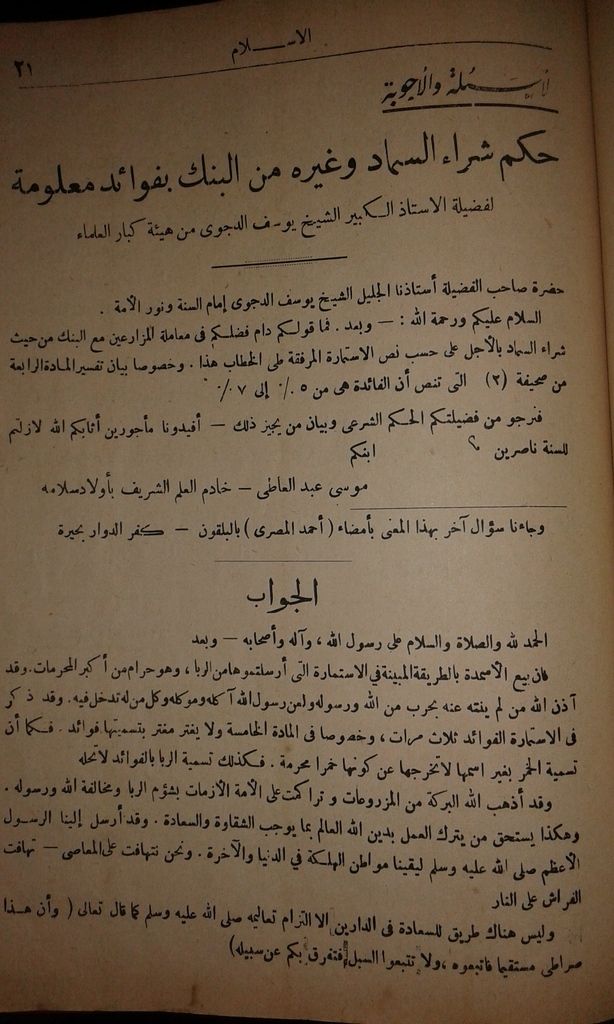 الاسلام
٢١
الأسئلة والأجوبة
حكم شراء السماد وغيره من البنك بفوائد معلومة
لفضيلة الاستاذ الكبير الشيخ يوسف الدجوى من هيئة كبار العلماء
حضرة صاحب الفضيلة أستاذنا الجليل الشيخ يوسف الدجوى إمام السنة ونور الأمة .
السلام عليكم ورحمة الله : — وبعد . فما قولكم دام فضلكم فى معاملة المزارعين مع البنك من حيث
شراء السماد بالأجل على حسب نص الاستمارة المرفقة طى الخطاب هذا . وخصوصا بيان تفسير المادة الرابعة
من صحيفة (٢) التى تنص أن الفائدة هى من ٥ ٪ إلى ٧ ٪
فنرجو من فضيلتكم الحكم الشرعى وبيان من يجيز ذلك — أفيدونا مأجورين أثابكم الله لازلتم
للسنة ناصرين ؟ ابنكم
موسى عبد العاطى — خادم العلم الشريف بأولاد سلامه
وجاءنا سؤال آخر بهذا المعنى بأمضاء ( أحمد المصرى ) بالبلقون — كفر الدوار بحيرة
الجواب
الحمد لله والصلاة والسلام على رسول الله ، وآله وأصحابه — وبعد
فان بيع الأسمدة بالطريقة المبينة فى الاستمارة التى أرسلتموها من الربا ، وهو حرام من أكبر المحرمات . وقد
آذن الله من لم ينته عنه بحرب من الله ورسوله ولعن رسول الله آكله وموكله وكل من له تدخل فيه . وقد ذكر
فى الاستمارة الفوائد ثلاث مرات ، وخصوصا فى المادة الخامسة ولا يغتر مغتر بتسميتها فوائد . فكما أن
تسمية الخمر بغير اسمها لا تخرجها عن كونها خمرا محرمة . فكذلك تسمية الربا بالفوائد لا تحله
وقد أذهب الله البركة من المزروعات وتراكمت على الأمة الأزمات بشؤم الربا ومخالفة الله ورسوله .
وهكذا يستحق من يترك العمل بدين الله العالم بما يوجب الشقاوة والسعادة . وقد أرسل إلينا الرسول
الأعظم صلى الله عليه وسلم ليقينا مواطن الهلكة في الدنيا والآخرة . ونحن نتهافت على المعاصى — تهافت
الفراش على النار
وليس هناك طريق للسعادة فى الدارين الا التزام تعاليمه صلى الله عليه وسلم كما قال تعالى ( وأن هذا
صراطى مستقيما فاتبعوه ، ولا تتبعوا السبل فتفرق بكم عن سبيله )